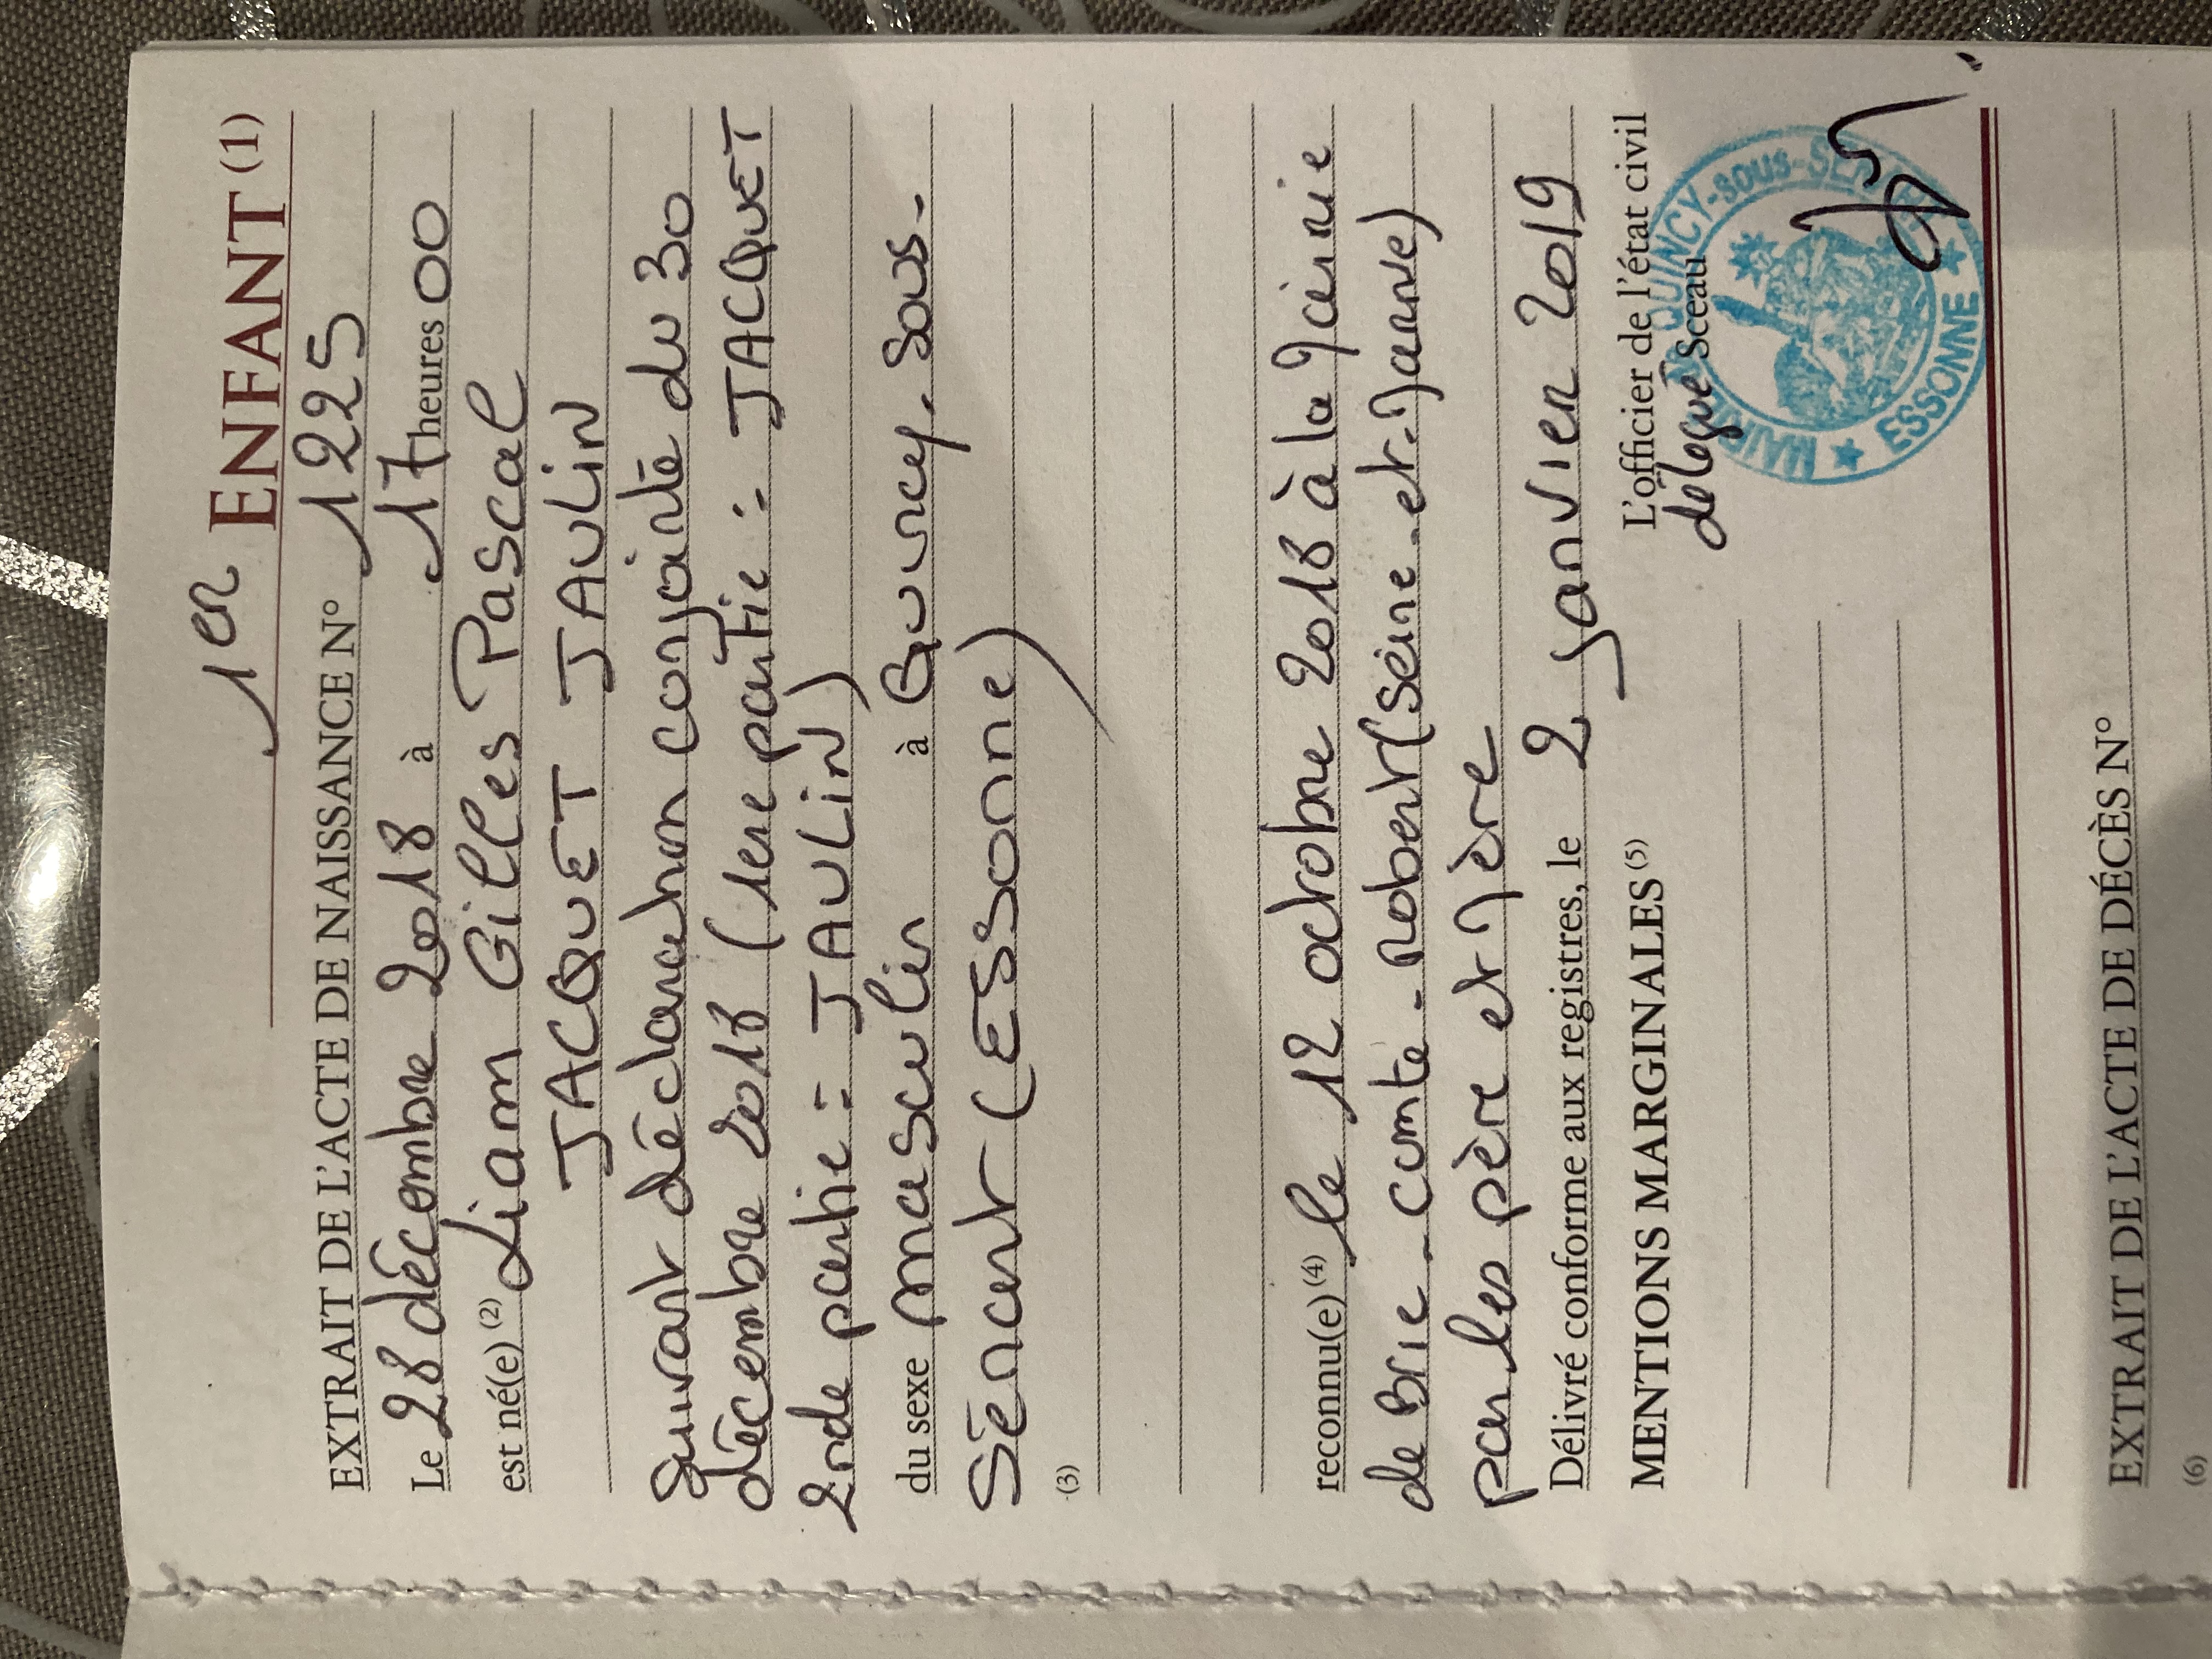 1er ENFANT (1)
EXTRAIT DE L'ACTE DE NAISSANCE N° 1225
Le 28 décembre 2018 à 17 heures 00
est né(e) (2) Liam Gilles Pascal
JACQUET JAULIN
Suivant déclaration conjointe du 30
décembre 2018 (1ere partie : JACQUET
2nde partie : JAULIN)
du sexe masculin à Quincy-sous-
Sénart (Essonne)
(3)
reconnu(e) (4) le 12 octobre 2018 à la Mairie
de Brie-comte-robert (Seine-et-Marne)
par les père et Mère
Délivré conforme aux registres, le 2 Janvier 2019
MENTIONS MARGINALES (5) L'officier de l'état civil
délégué Sceau
MAIRIE QUINCY-SOUS-SÉNART
★ ESSONNE ★
EXTRAIT DE L'ACTE DE DÉCÈS N°
(6)